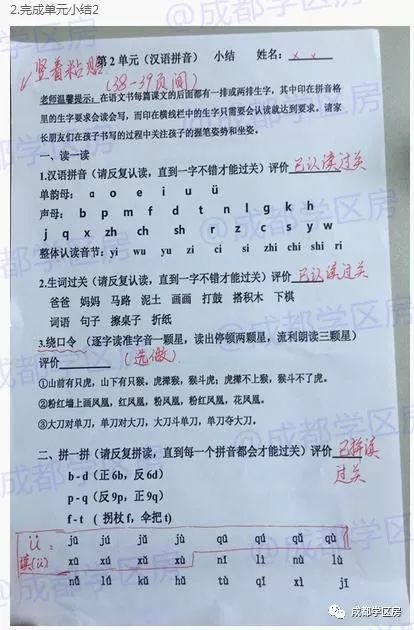 2.完成单元小结2
第2单元（汉语拼音） 小结 姓名：x x
✓竖着粘贴
(38-39页间)
老师温馨提示：在语文书每篇课文的后面都有一排或两排生字，其中印在田字格
里的生字要求会读会写，而印在横线栏中的生字只需要会认读就达到要求。请家
长朋友们在孩子书写的过程中关注孩子的握笔姿势和坐姿。
一、读一读
1.汉语拼音（请反复认读，直到一字不错才能过关）评价已认读过关
单韵母： ɑ o e i u ü
声母： b p m f d t n l g k h
j q x zh ch sh r z c s y w
整体认读音节：yi wu yu zi ci si zhi chi shi ri
2.生词过关（请反复认读，直到一字不错才能过关）评价已认读过关
爸爸 妈妈 马路 泥土 画画 打鼓 搭积木 下棋
词语 句子 擦桌子 折纸
3.绕口令（逐字读准字音一颗星，读出停顿两颗星，流利朗读三颗星）
评价 (选做)
①山前有只虎，山下有只猴。虎撵猴，猴斗虎；虎撵不上猴，猴斗不了虎。
②粉红墙上画凤凰，红凤凰，粉凤凰，粉红凤凰，花凤凰。
③大刀对单刀，单刀对大刀，大刀斗单刀，单刀夺大刀。
二、拼一拼（请反复拼读，直到每一个拼音都会才能过关）评价已拼读
过关
b - d（正 6b，反 6d）
p - q（反 9p，正 9q）
f - t （ 拐杖 f，伞把 t）
jū jú jǔ jù qū qú qǔ qù
读(ü)
xū xú xǔ xù nǐ lì nù lù
kǔ hū tù qī xì jī
成都学区房